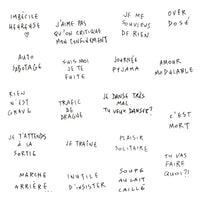 IMBÉCILE
HEUREUSE
J'AIME PAS
QU'ON CRITIQUE
MON CONFINEMENT
JE ME
SOUVIENS
DE RIEN
OVER
DOSÉ
AUTO
SABOTAGE
SUIS MOI
JE TE
FUITE
JOURNÉE
PYJAMA
AMOUR
MODULABLE
RIEN
N'EST
GRAVE
TRAFIC
DE
DRAGUE
JE DANSE TRÈS
MAL.
TU VEUX DANSER?
C'EST
MORT
JE T'ATTENDS
À LA
SORTIE
JE TRAÎNE
PLAISIR
SOLITAIRE
TU VAS
FAIRE
QUOI?!
MARCHE
ARRIÈRE
INUTILE
D'INSISTER
SOUPE
AU LAIT
CAILLÉ